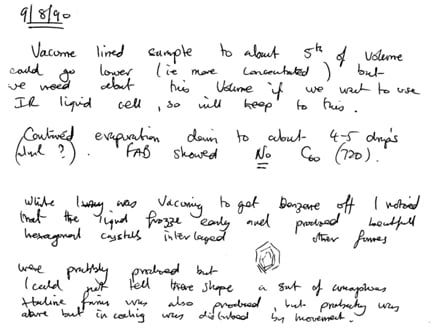 9/8/90
Vacume lined sample to about 5th of Volume
could go lower (ie more concentrated) but
we need about this Volume if we want to use
IR liquid cell, so will keep to this.
(Continued evaporation down to about 4-5 drops
). FAB showed No C60 (720).
While I was Vacuming to get Benzene off I noticed
that the liquid frozze early and produced beautifull
hexagonal crystals interlaged other forms
were probably produced but
I could not tell there shape a sort of amorphous
forms was also produced, but probably was
above but in cooling was disturbed by movement.